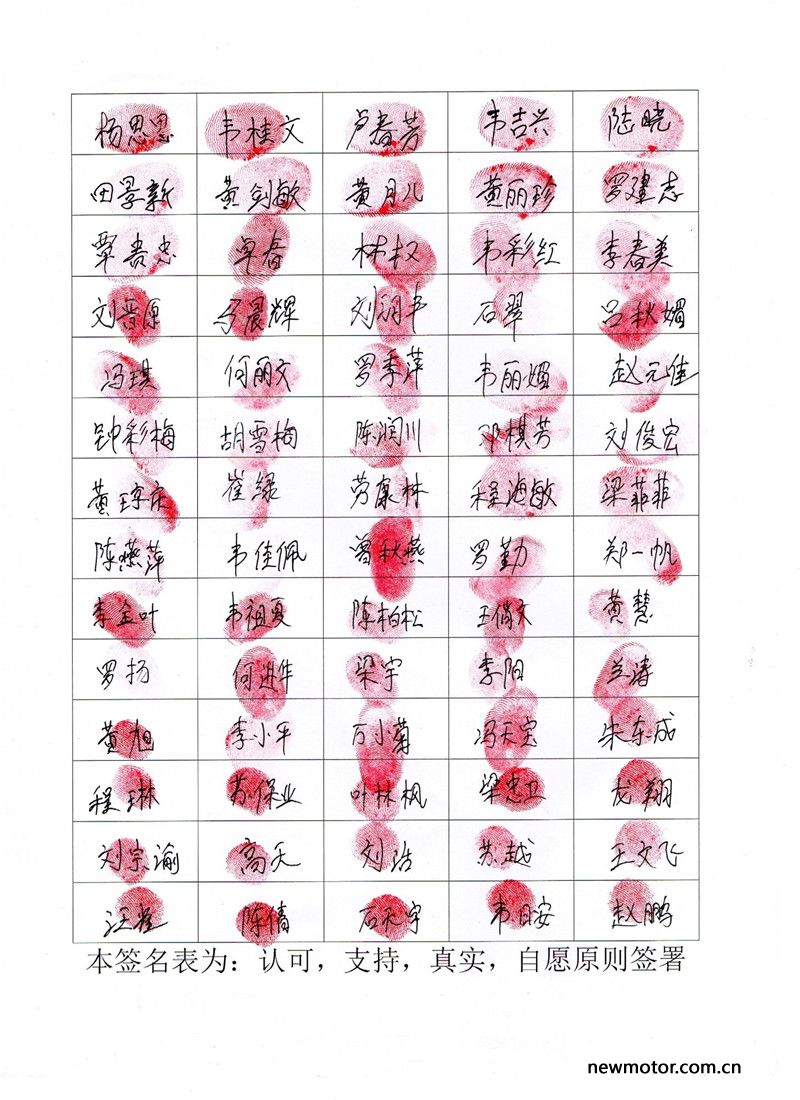 杨思思 韦桂文 卢春芳 韦吉兴 陆晓
田景新 黄剑敏 黄月儿 黄丽珍 罗建志
覃贵忠 卓春 林权 韦彩红 李春美
刘晋源 晨辉 刘润平 石翠 吕秋媚
冯琪 何丽文 罗季萍 韦丽媚 赵元佳
钟彩梅 胡雪梅 陈润川 邓棋芳 刘俊宏
黄 崔绿 劳康林 程海敏 梁菲菲
陈燕萍 韦佳佩 曾秋燕 罗勤 郑一帆
李金叶 韦祖夏 陈柏松 王俏文 黄慧
罗扬 何进华 梁宇 李阳 兰涛
黄旭 李小平 万小菊 冯天宝 朱东成
程琳 苏保业 叶林枫 梁忠卫 龙翔
刘宗渝 高天 刘浩 苏越 王文飞
汪雀 陈倩 石天宇 韦日安 赵鹏
本签名表为：认可，支持，真实，自愿原则签署
newmotor.com.cn